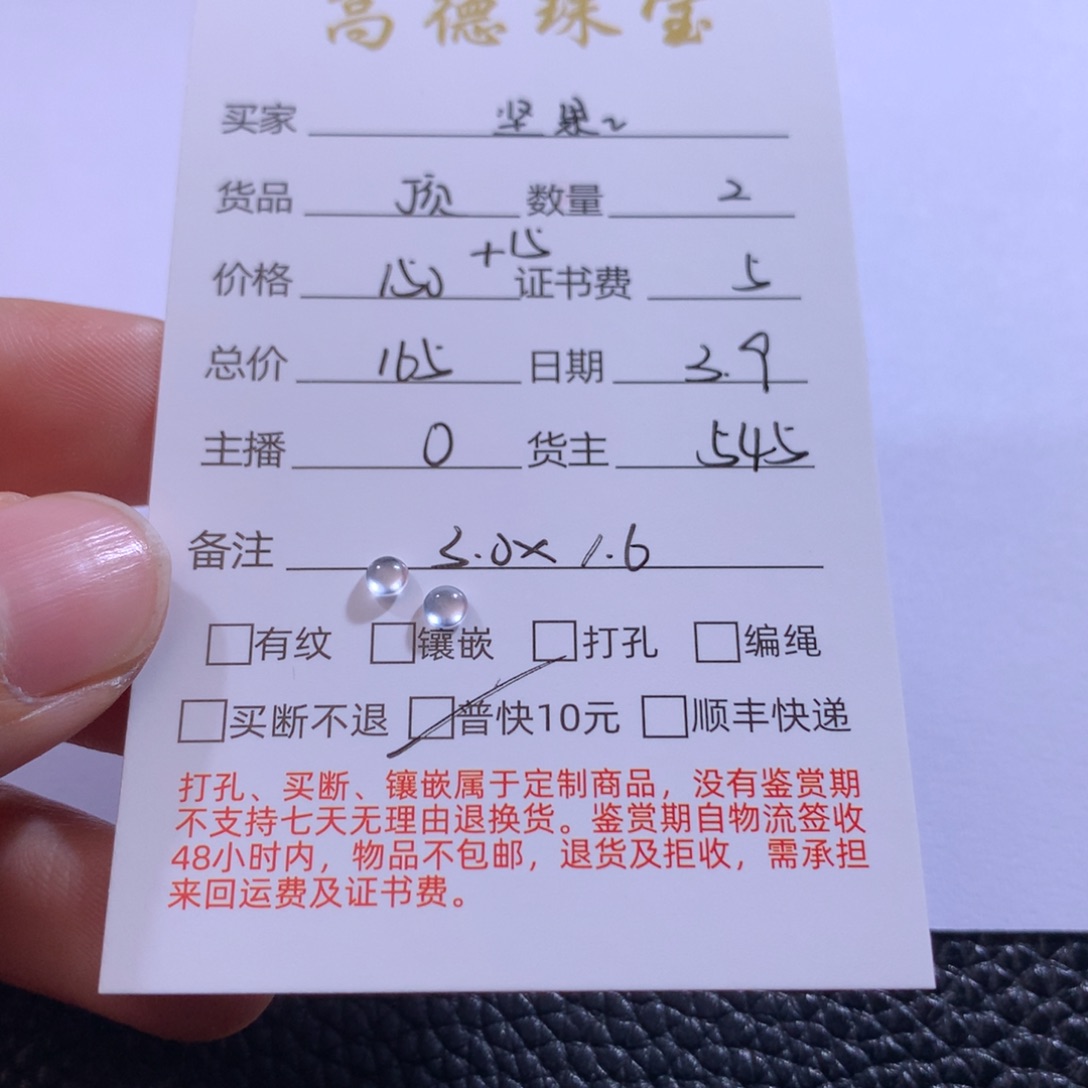 高德珠宝
买家 坚果~
货品 顶 数量 2
+15
价格 150 证书费 5
总价 165 日期 3.9
主播 0 货主 545
备注 3.0× 1.6
有纹 镶嵌 打孔 编绳
买断不退 普快10元 顺丰快递
打孔、买断、镶嵌属于定制商品，没有鉴赏期
不支持七天无理由退换货。鉴赏期自物流签收
48小时内，物品不包邮，退货及拒收，需承担
来回运费及证书费。